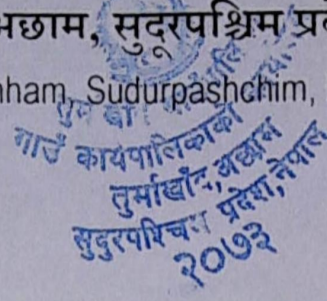 अछाम, सुदूरपश्चिम प्र
ham, Sudurpashchim,
गाउँ कार्यपालिकाको
तुर्माखाँद, अछाम
सुदुरपश्चिम प्रदेश, नेपाल
२०७३